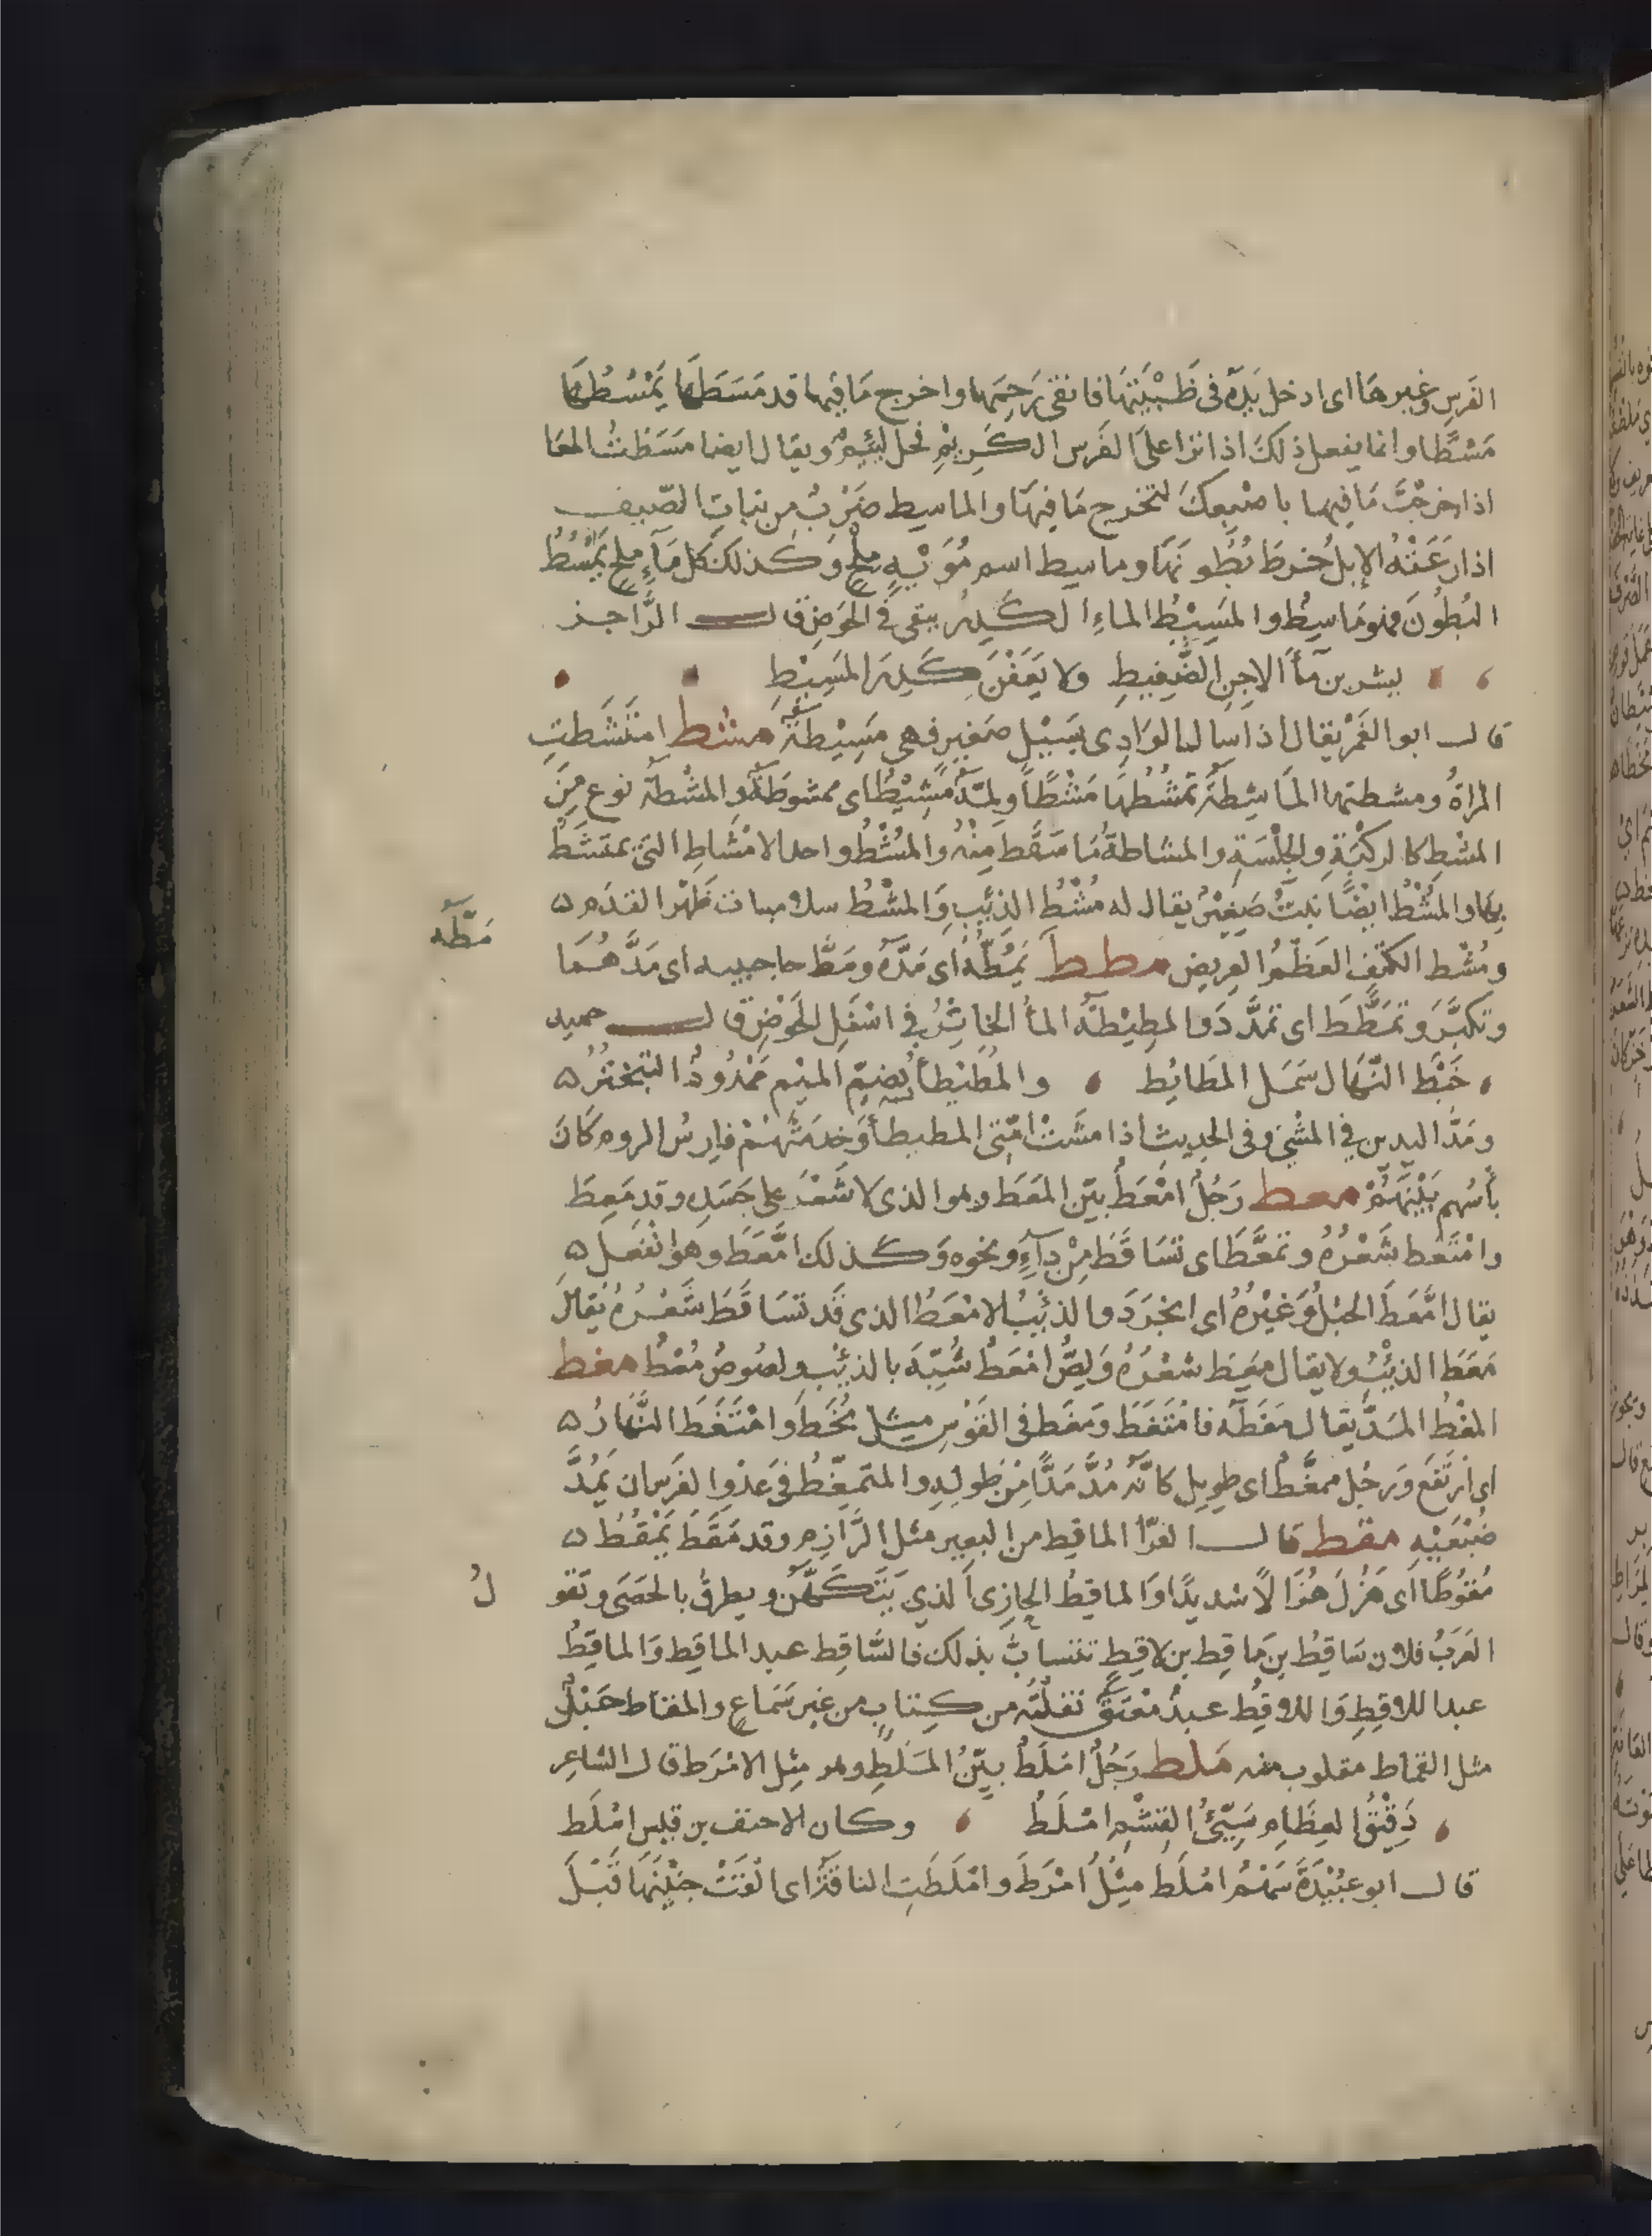 الفَرسِ وغيرهَا اى ادخل يَدَهُ فى ظَبْيَتِهَا فانقى رَحِمَها واخرج مَا فيها قد مَسَطَهَا يَمْسُطُهَا
مَسْطًا وانما يفعل ذلكَ اذا نزا علىَ الفَرس الكَرِيْمِ فحل لَئِيْمٌ ويقال ايضا مَسَطْتُ المعَا
اذا خرجْتَ مَا فيها باصْبعِكَ لتخرج مَا فيهَا والماسِط ضَرْبٌ من نباتِ الصّيفِ
اذا رَعَتْهُ الإبلُ خرطَ بُطُونَهَا وماسِط اسم مُوَيْهٍ مِلْحٍ وكذلكَ كل مَآءٍ ملحٍ يَمْسُطُ
البُطُونَ فهو مَاسِطٌ والمَسِيْطُ الماءُ الكَدِرُ يبقى فى الحَوَضِ قال الرَّاجز
يشربن مَأَ الاجِنِ الضَّغِيطِ ولا يَعَفْنَ كَدِرَ المَسِيْطِ
قال ابو الغَمْرِ يقال اذا سال الوَادِى بسَيْلٍ صَغيرٍ فهى مَسِيْطَةٌ مشط امتَشَطتِ
المراةُ ومشطتها المَاشِطَةُ تَمْشُطُهَا مَشْطًا ولِمَّةٌ مَشِيْطٌ اى ممشوطَةٌ والمِشْطَةُ نوع مِنَ
المشطِ كالرِكْبَةِ والجِلْسَةِ والمشاطةُ مَا سَقَطَ مِنْهُ والمُشْطُ واحد الامْشاطِ التىِ يمتَشَطُ
بِهَا والمُشْطُ ايْضًا نَبتٌ صَغِيْرٌ يقال له مُشْطُ الذِئْبِ وَالمُشْطُ سلاميات ظَهْرِ القدَم
مَطَّه
ومُشْط الكتِفِ العَظْمُ العريض مطط يَمُطُّهُ اى مَدَّهُ ومَطَّ حاجبيه اى مَدَّهُمَا
وتكبَّرَ وتَمَطَّطَ اى تمدَّدَ والمطِيْطَةُ المأُ الخاثِرُ فى اسْفَلِ الحَوْضِ قال حميد
خَبْطَ النِّهَال سَمَلَ المطَائِطِ والمُطَيْطَأُ بُضمّ الميْم مَمْدُودٌ التبخترُ
ومَدُّ اليدين في المَشْي وفى الحديث اذا مشَتْ امّتى المطيطأَ وَخدمَتْهُمْ فارسُ الروم كَانَ
بأسُهم بَيْنَهُمْ معط رَجُلٌ امْعَطُ بيّن المَعَط وهو الذى لا شَعْرَ على جَسَدِهِ وقد مَعِطَ
وامْتَعْط شَعْرُهُ وتمَعَّطَ اى تسَاقَطَ مِنْ دآءٍ ونحوه وَكذلك امَّعَطَ وهوَ انْفَعَلَ
يقال امَّعَطَ الحبْلُ وَغيْرُهُ اى انجَرَدَ والذئْبُ الامْعَطُ الذى قد تَسَاقَطَ شَعْرُهُ يُقالُ
مَعَطَ الذِئْبُ ولا يقال معِطَ شعْرُهُ وَلِصٌّ امْعَطُ شُبِّهَ بالذِئْبِ ولصُوصٌ مُعْطٌ مغط
المغْطُ المَدُّ يقال مَغَطَهُ فامْتَغَطَ ومَغَط فى القَوْسِ مِثل مُخَط وامْتَغَطَ النَّهَارُ
اى ارْتَفَعَ وَرجُل ممغَّطٌ اى طويل كانَّهُ مُدَّ مَدًّا مِنْ طولِه والمتمَغِّطُ فى عَدْوِ الفَرَس ان يَمُدَّ
ضَبْعَيْهِ مقط قال الفرّأ الماقِط من البعِير مثل الرَّازِم وقد مَقَطَ يَمْقُطُ
مُقوْطًا اى هَزُلَ هُزَالًا شديدًا وَالماقِطُ الحازِى الذي يَتَكهَّنُ ويطرقُ بالحَصَى وتقو
لُ
العَرَبُ فلان سَاقِطُ بن مَاقِط بن لاقِطٍ تتسابُّ بذلك فالسَّاقِط عبد الماقِطِ وَالماقِطُ
عبد اللاقِطِ وَاللاقِطُ عبدٌ مُعْتَقٌ نقلْتُه من كتابٍ من غير سَمَاعٍ والمقاط حَبْلٌ
مثل القماط مقلوب منه ملط رَجُلٌ امْلَطُ بيّنُ المَلَطِ وهو مِثل الامْرَط قال الشاعِر
دَقِيْقُ العِظَامِ سَيّئُ القِشْمِ امْلَطُ وكان الاحنف بن قيسٍ امْلَط
قال ابو عبُيْدَةَ سَهْمٌ امْلَط مِثْلُ امْرَطَ وامْلَطَتِ الناقَةُ اى القَتْ جنِيْنَهَا قَبْلَ